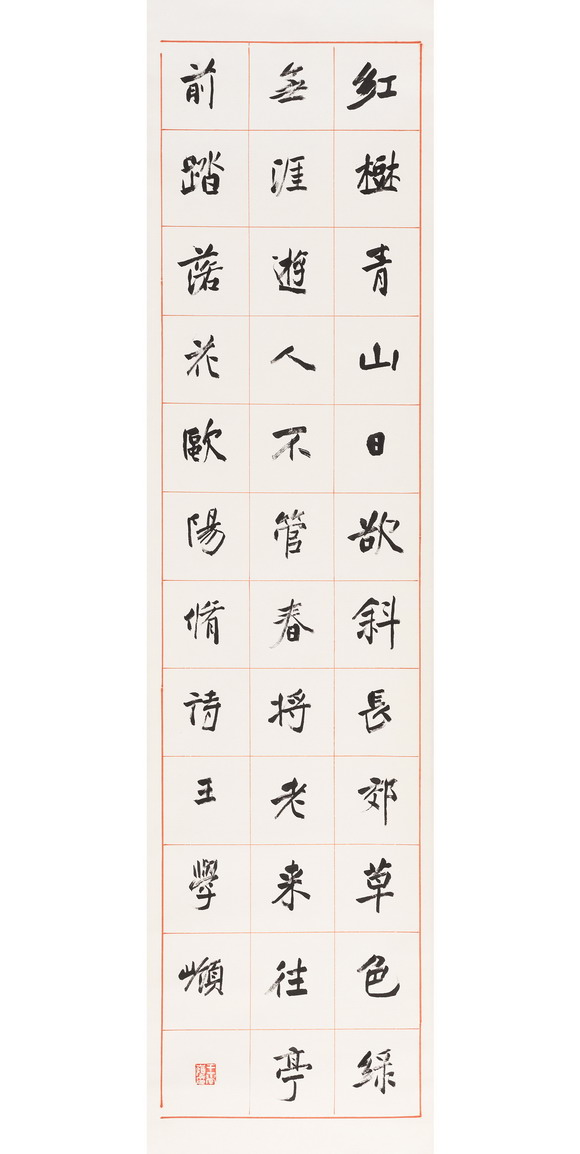 紅樹青山日欲斜長郊草色綠
無涯遊人不管春將老来往亭
前踏落花歐陽脩詩王學